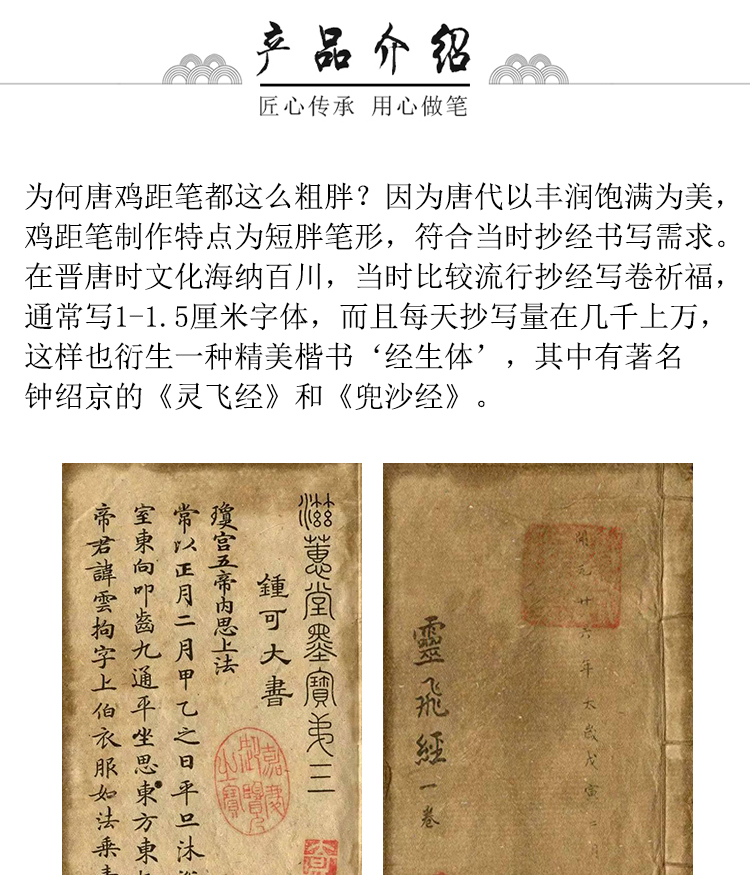 产品介绍
匠心传承 用心做笔
为何唐鸡距笔都这么粗胖？因为唐代以丰润饱满为美，
鸡距笔制作特点为短胖笔形，符合当时抄经书写需求。
在晋唐时文化海纳百川，当时比较流行抄经写卷祈福，
通常写1-1.5厘米字体，而且每天抄写量在几千上万，
这样也衍生一种精美楷书‘经生体’，其中有著名
钟绍京的《灵飞经》和《兜沙经》。
滋蕙堂墨寶弟三
鍾可大書
瓊宫五帝内思上法
常以正月二月甲乙之日平旦沐
室東向叩齒九通平坐思東方東
帝君諱雲拘字上伯衣服如法乘
開元廿六年太歲戊寅二月
靈飛經一卷